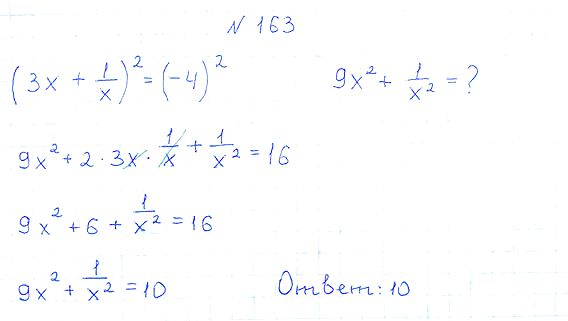 N 163
(3x + 1/x)² = (-4)² 9x² + 1/x² = ?
9x² + 2 · 3x · 1/x + 1/x² = 16
9x² + 6 + 1/x² = 16
9x² + 1/x² = 10 Ответ: 10